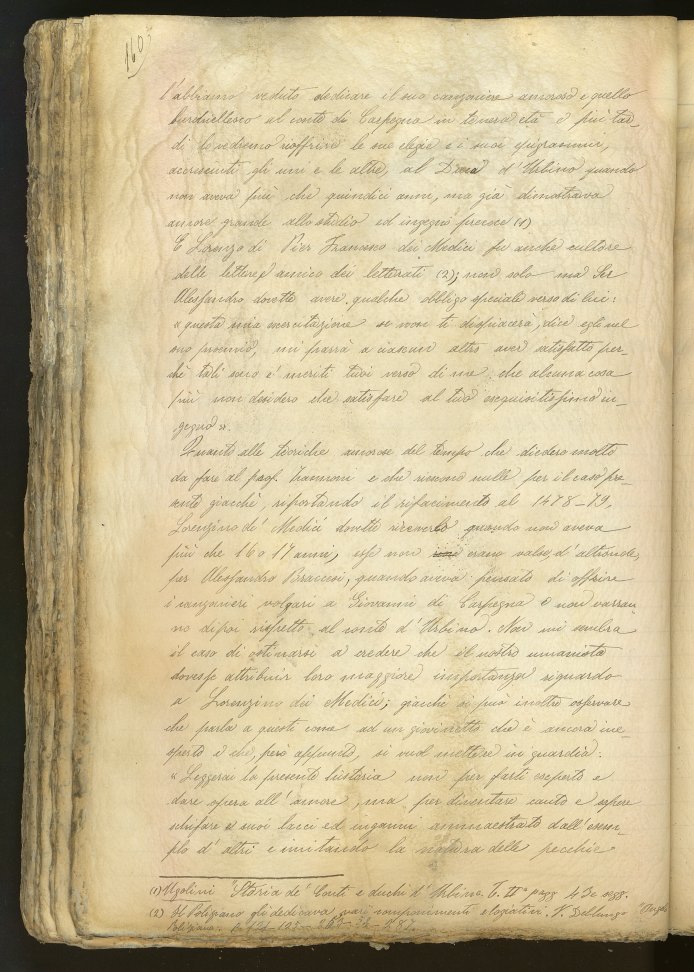 160
l'abbiamo veduto dedicare il suo canzoniere amoroso e quello
burchiellesco al conte di Carpegna in tenera età e più tar-
di lo vedremo offrire le sue elegie e i suoi epigrammi,
accresciuti gli uni e le altre, al Duca d'Urbino quando
non aveva più che quindici anni, ma già dimostrava
amore grande allo studio ed ingegno precoce (1)
E Lorenzo di Pier Francesco dei Medici fu anche cultore
delle lettere e amico dei letterati (2); non solo ma Ser
Alessandro dovette avere qualche obbligo speciale verso di lui:
« questa mia exercitazione se non ti dispiacerà, dice egli nel
suo proemio, mi parrà a ciascun altro aver satisfatto per-
chè tali sono e' meriti tuoi verso di me che alcuna cosa
più non desidero che satisfare al tuo exquisitissimo in-
gegno ».
Quanto alle teoriche amorose del tempo che diedero molto
da fare al prof. Zannoni e che sono nulle per il caso pre-
sente giacchè, riportando il rifacimento al 1478-79,
Lorenzino de' Medici dovette riceverlo quando non aveva
più che 16 o 17 anni, esse non erano valse, d'altronde,
per Alessandro Braccesi, quando aveva pensato di offrire
i canzonieri volgari a Giovanni di Carpegna e non varran-
no dipoi rispetto al conte d'Urbino. Non mi sembra
il caso di ostinarsi a credere che il nostro umanista
dovesse attribuir loro maggiore importanza riguardo
a Lorenzino dei Medici; giacchè si può inoltre osservare
che parla a questi come ad un giovinetto che è ancora ine-
sperto e che, però appunto, si vuol mettere in guardia.
« Leggerai la presente historia non per farti experto e
dare opera all'amore, ma per diventare cauto e sapere
schifare e' suoi lacci ed inganni ammaestrato dall'esem-
plo d'altri e imitando la natura delle pecchie
(1) Ugolini "Storia de' Conti e duchi d'Urbino T. II° pagg 43 e segg.
(2) Il Poliziano gli dedicava vari componimenti elogiativi. V. Del Lungo
Poliziano. p. 121-123